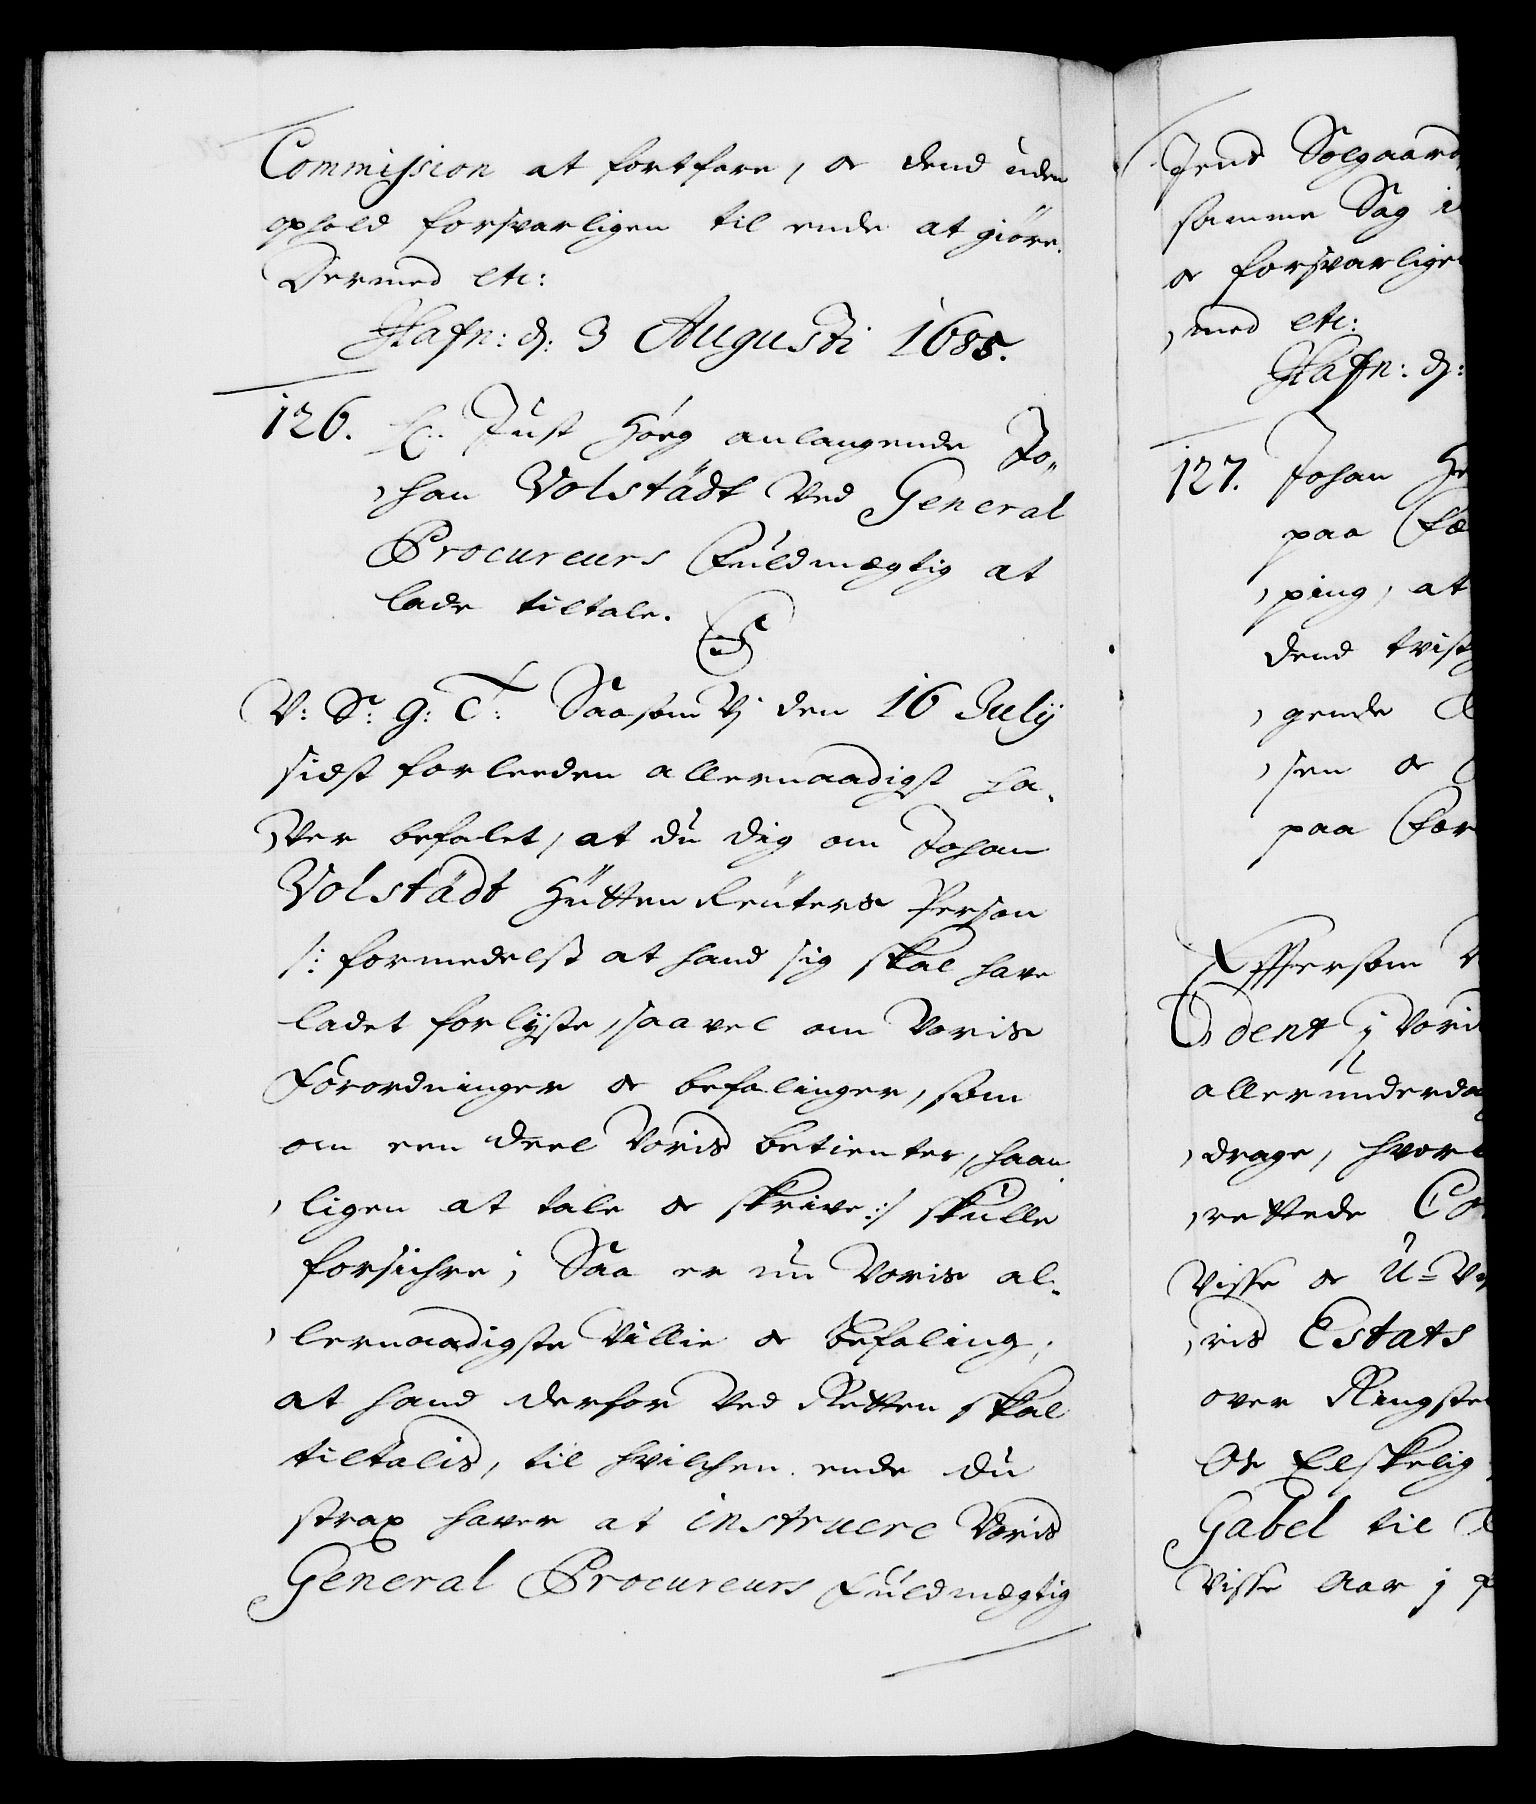 Commission at fortfare, oc dend uden
ophold forsvarligen til ende at giöre.
Dermed etc:
Hafn: d: 3 Augusti 1685.
126. Just Höeg anlangende Jo-
han Volstädt Ved General
Procureurs Fuldmægtig at
lade tiltale.
V: S: g: T: Saasom Vi den 16 July
sidst forleeden allernaadigst ha-
ver befalet, at du dig om Johan
Volstädt Hütten Reuters Person
/: formedelst at hand sig skal have
ladet forlyste, saavel om Voris
Forordninger oc befalinger, som
om een deel Voris betienter, haan-
ligen at tale oc skrive :/ skulle
forsichre; Saa er nu Voris al-
lernaadigste Villie oc befaling,
at hand derfor Ved Retten skal
tiltalis, til hvilchen ende du
strax haver at instruere Voris
General Procureurs Fuldmægtig
Jens Solgaard
samme Sag i
oc forsvarlige
med etc:
Hafn: d:
127. Johan
paa
ping, at
dend trist
gende
sen oc
paa For
Eftersom
dent i Vori
allerunderda
drage, hvor
rettede
Visse oc U-V
ris Estats
over Ringste
Os Elskelig
Gabel til
Visse Aar i